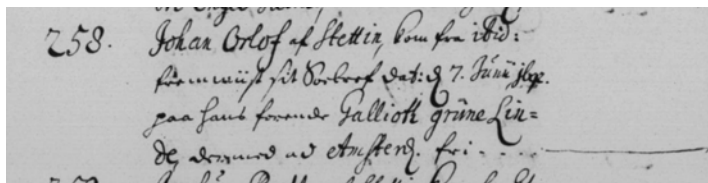 258. Johan Orlof af Stettin, kom fra ibid:
fremwiist sit Söebref dat: d 7. Junii
paa hans förende Galliott grüne Lin=
de, dermed ad Amsterd. fri - -